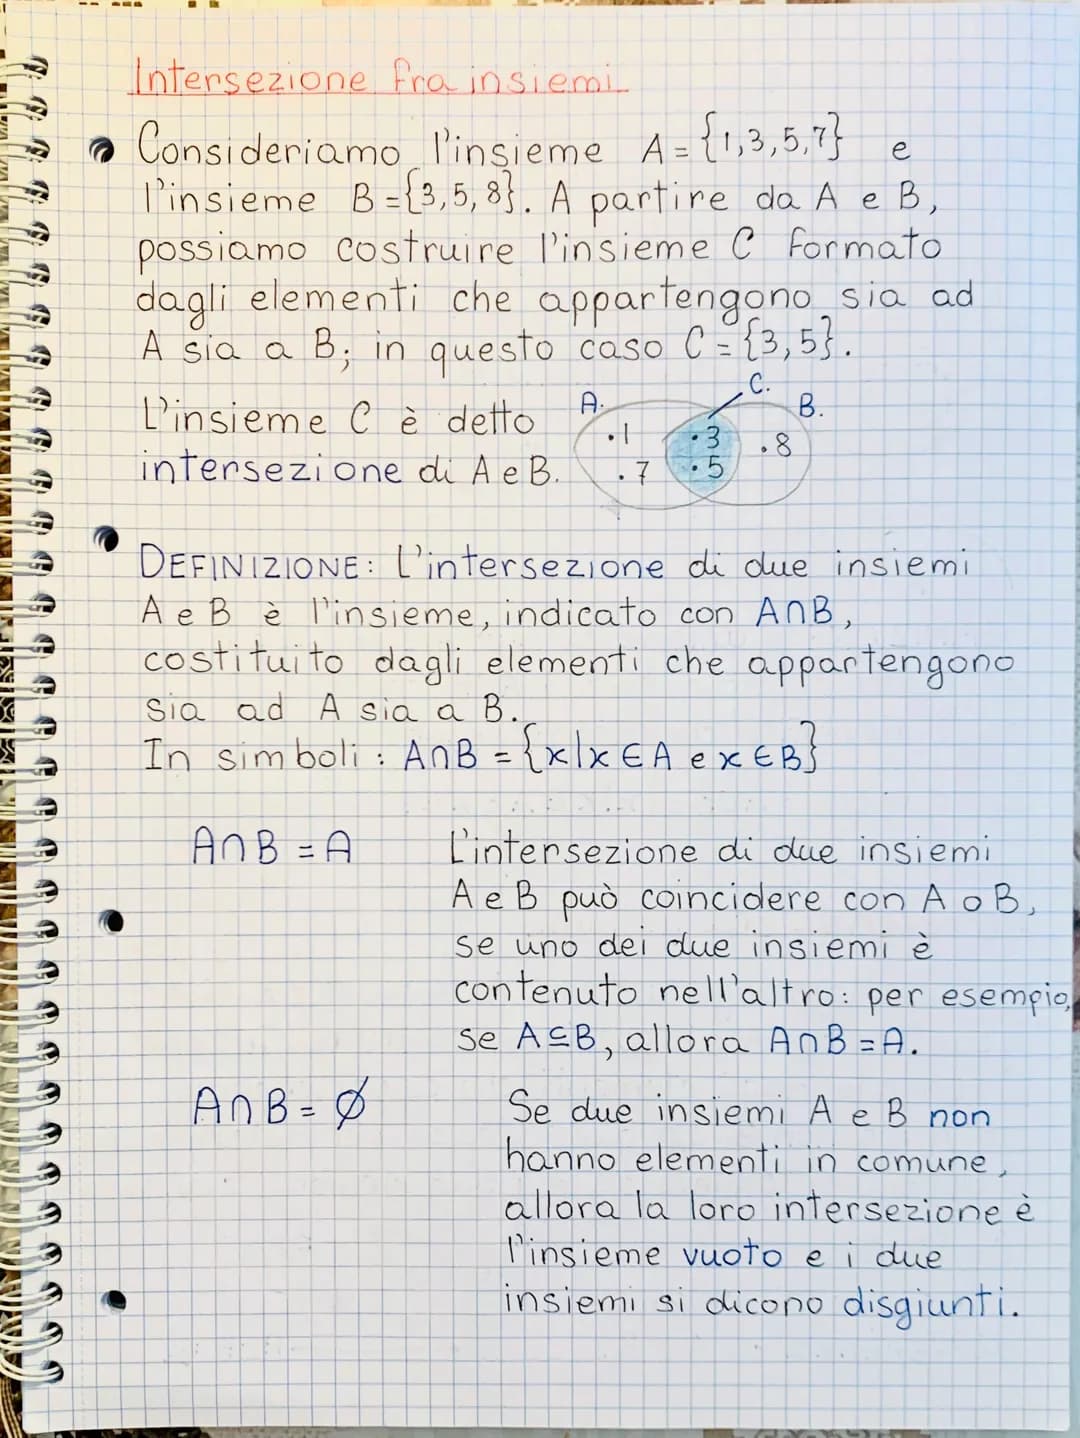 Intersezione fra insiemi
Consideriamo l'insieme A = {1,3,5,7} e
l'insieme B = {3,5,8}. A partire da A e B,
possiamo costruire l'insieme C formato
dagli elementi che appartengono sia ad
A sia a B; in questo caso C = {3,5}.
L'insieme C è detto
intersezione di A e B.
A. C. B.
.1 .3 .8
.7 .5
DEFINIZIONE: L'intersezione di due insiemi
A e B è l'insieme, indicato con A∩B,
costituito dagli elementi che appartengono
sia ad A sia a B.
In simboli: A∩B = {x|x ∈ A e x ∈ B}
A∩B = A
L'intersezione di due insiemi
A e B può coincidere con A o B,
se uno dei due insiemi è
contenuto nell'altro: per esempio,
se A⊆B, allora A∩B = A.
A∩B = Ø
Se due insiemi A e B non
hanno elementi in comune,
allora la loro intersezione è
l'insieme vuoto e i due
insiemi si dicono disgiunti.